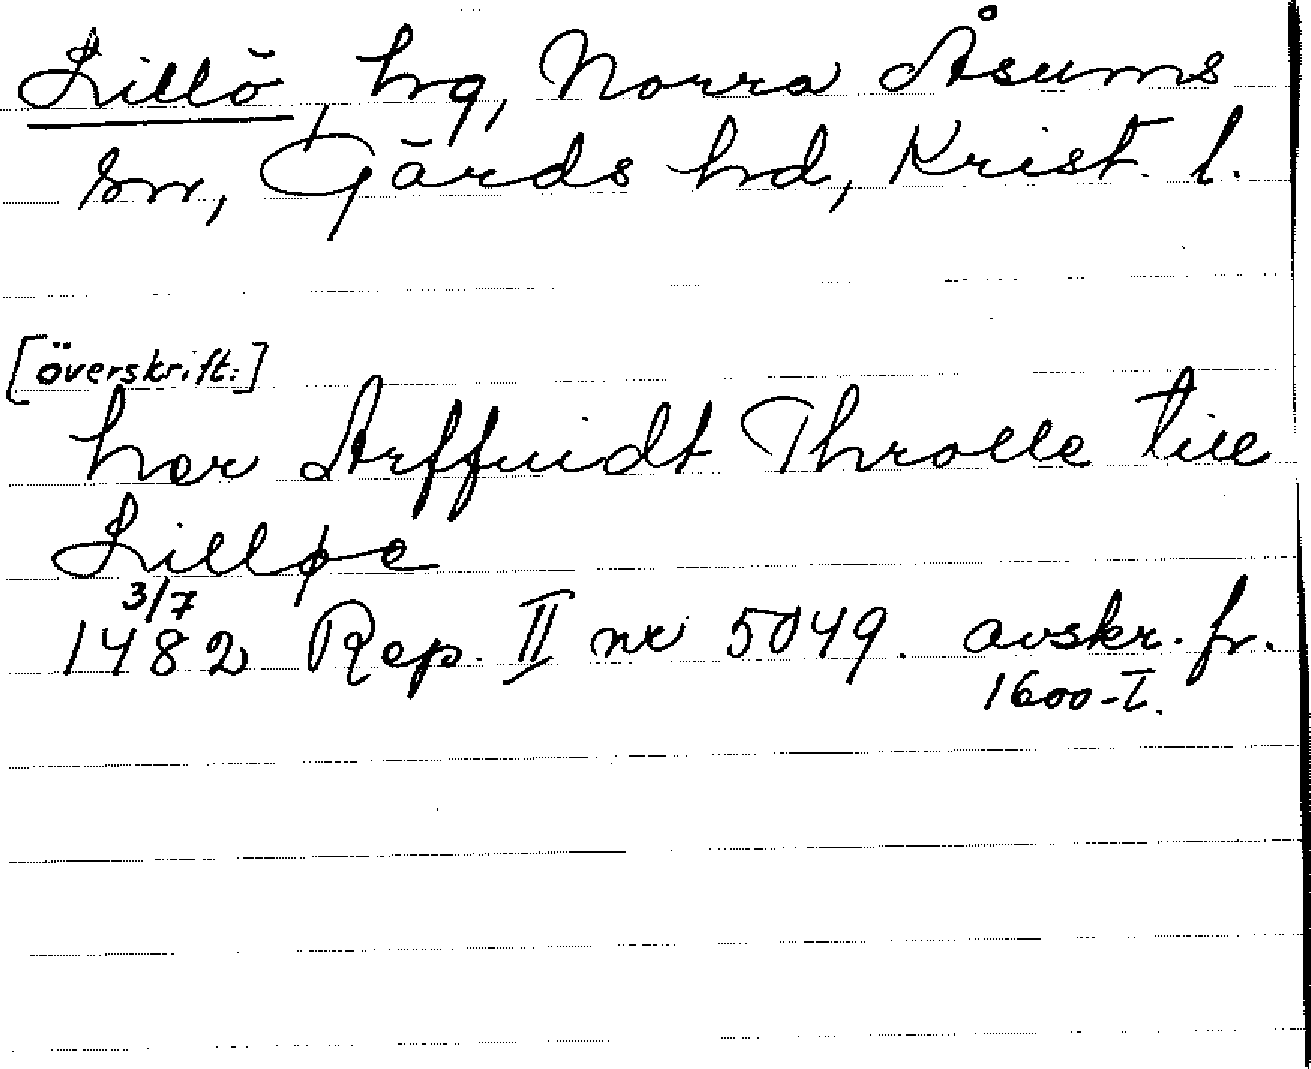 Lillö, hg, Norra Åsums
sn, Gärds hd, Krist. l.
[överskrift:]
her Arffuidt Throlle till
Lilløe
3/7
1482 Rep. II nr 5049. avskr. fr.
1600-T.